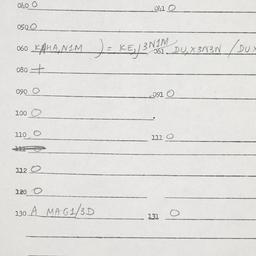 040 O 041 O
050 O
060 KAHA,N1M ) = KE,/3N1M 061 DU,X3N3N / DU X
080 +
090 O 091 O
100 O
110 O 111 O
112 O
120 O
130 A MAG1/3D 131 O